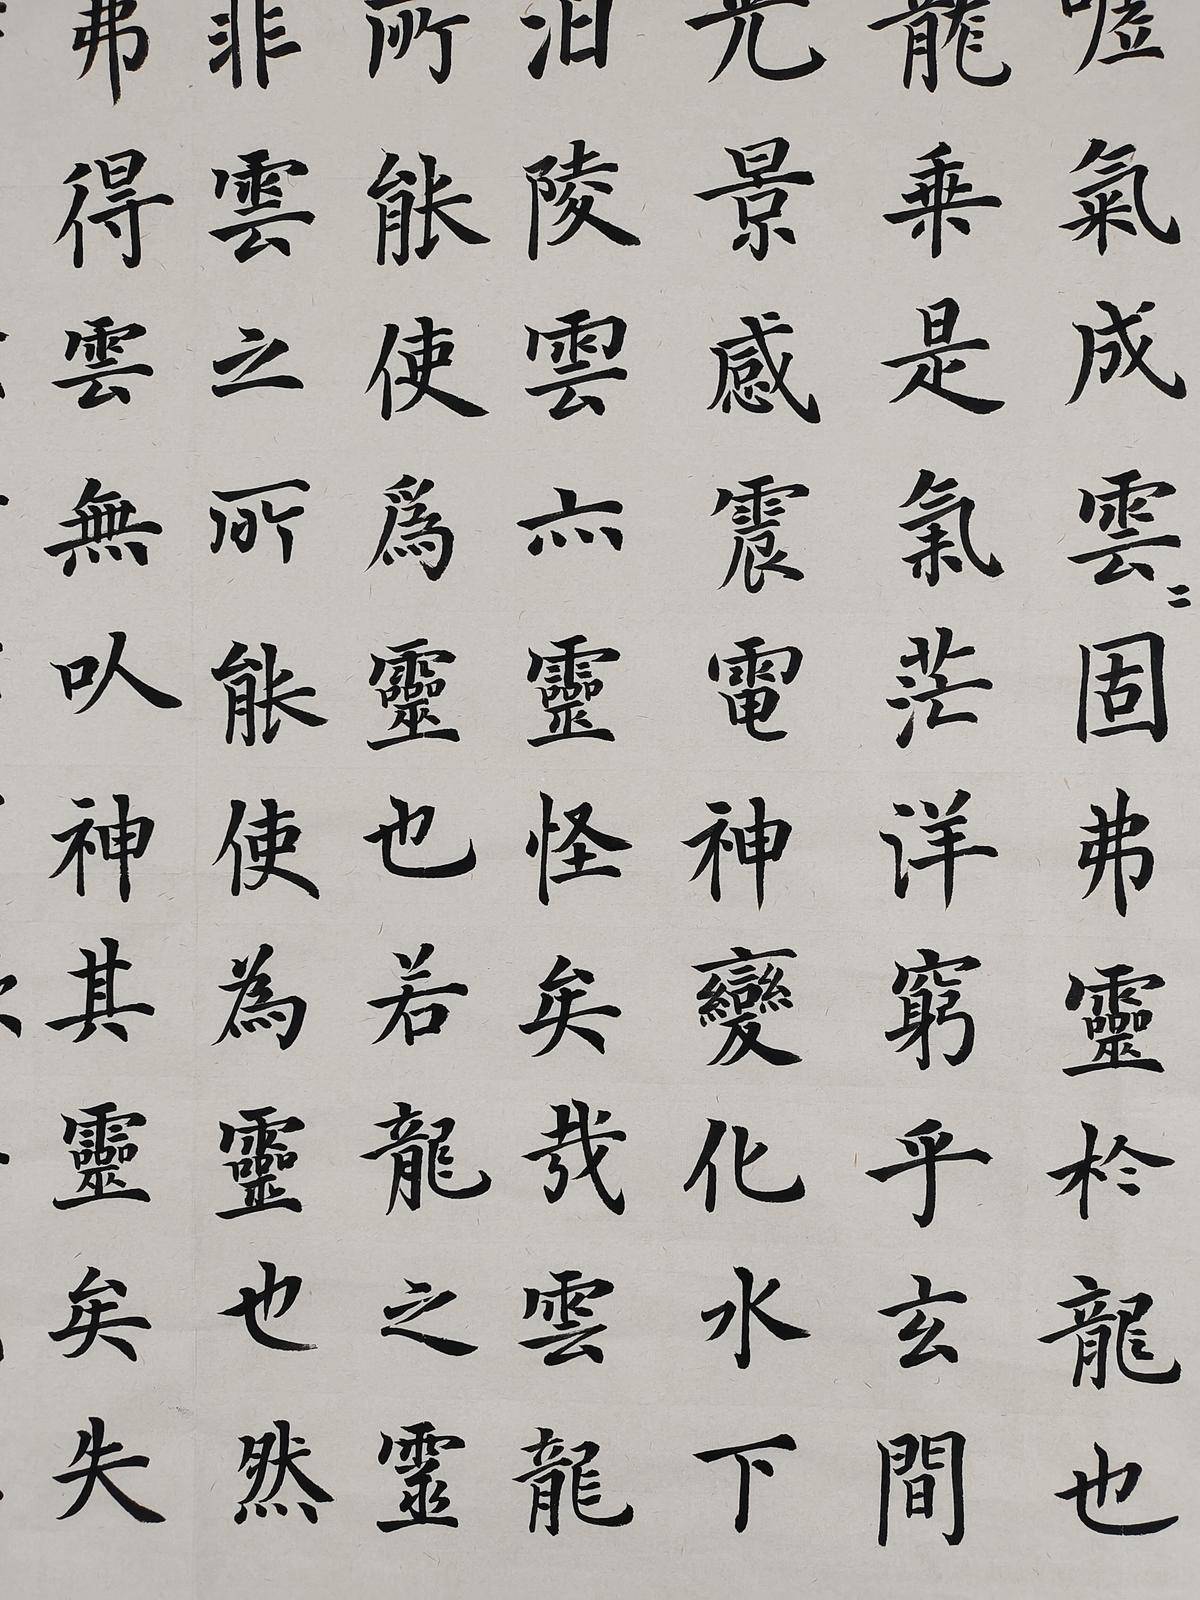 噓氣成雲〻固弗靈於龍也
龍乘是氣茫洋窮乎玄間
光景感震電神變化水下
汩陵雲亦靈怪矣哉雲龍
所能使爲靈也若龍之靈
非雲之所能使為靈也然
弗得雲無以神其靈矣失